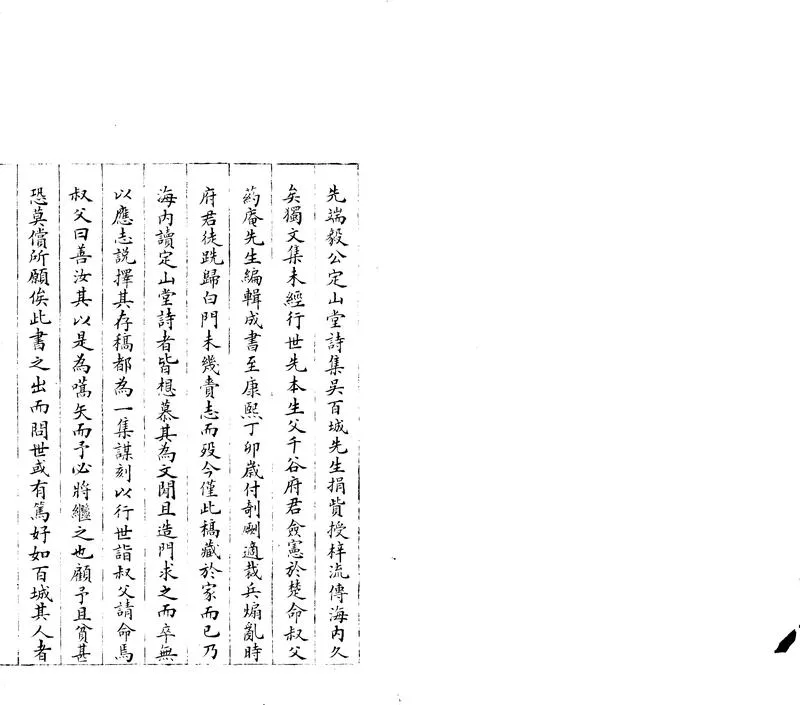 先端毅公定山堂詩集吳百城先生捐貲授梓流傳海內久
矣獨文集未經行世先本生父千谷府君僉憲於楚命叔父
葯庵先生編輯成書至康熙丁卯歲付剞劂適裁兵煽亂時
府君徒跣歸白門未幾賫志而歿今僅此稿藏於家而已乃
海內讀定山堂詩者皆想慕其為文聞且造門求之而卒無
以應志說擇其存稿都為一集謀刻以行世詣叔父請命焉
叔父曰善汝其以是為嚆矢而予必將繼之也顧予且貧甚
恐莫償所願俟此書之出而問世或有篤好如百城其人者